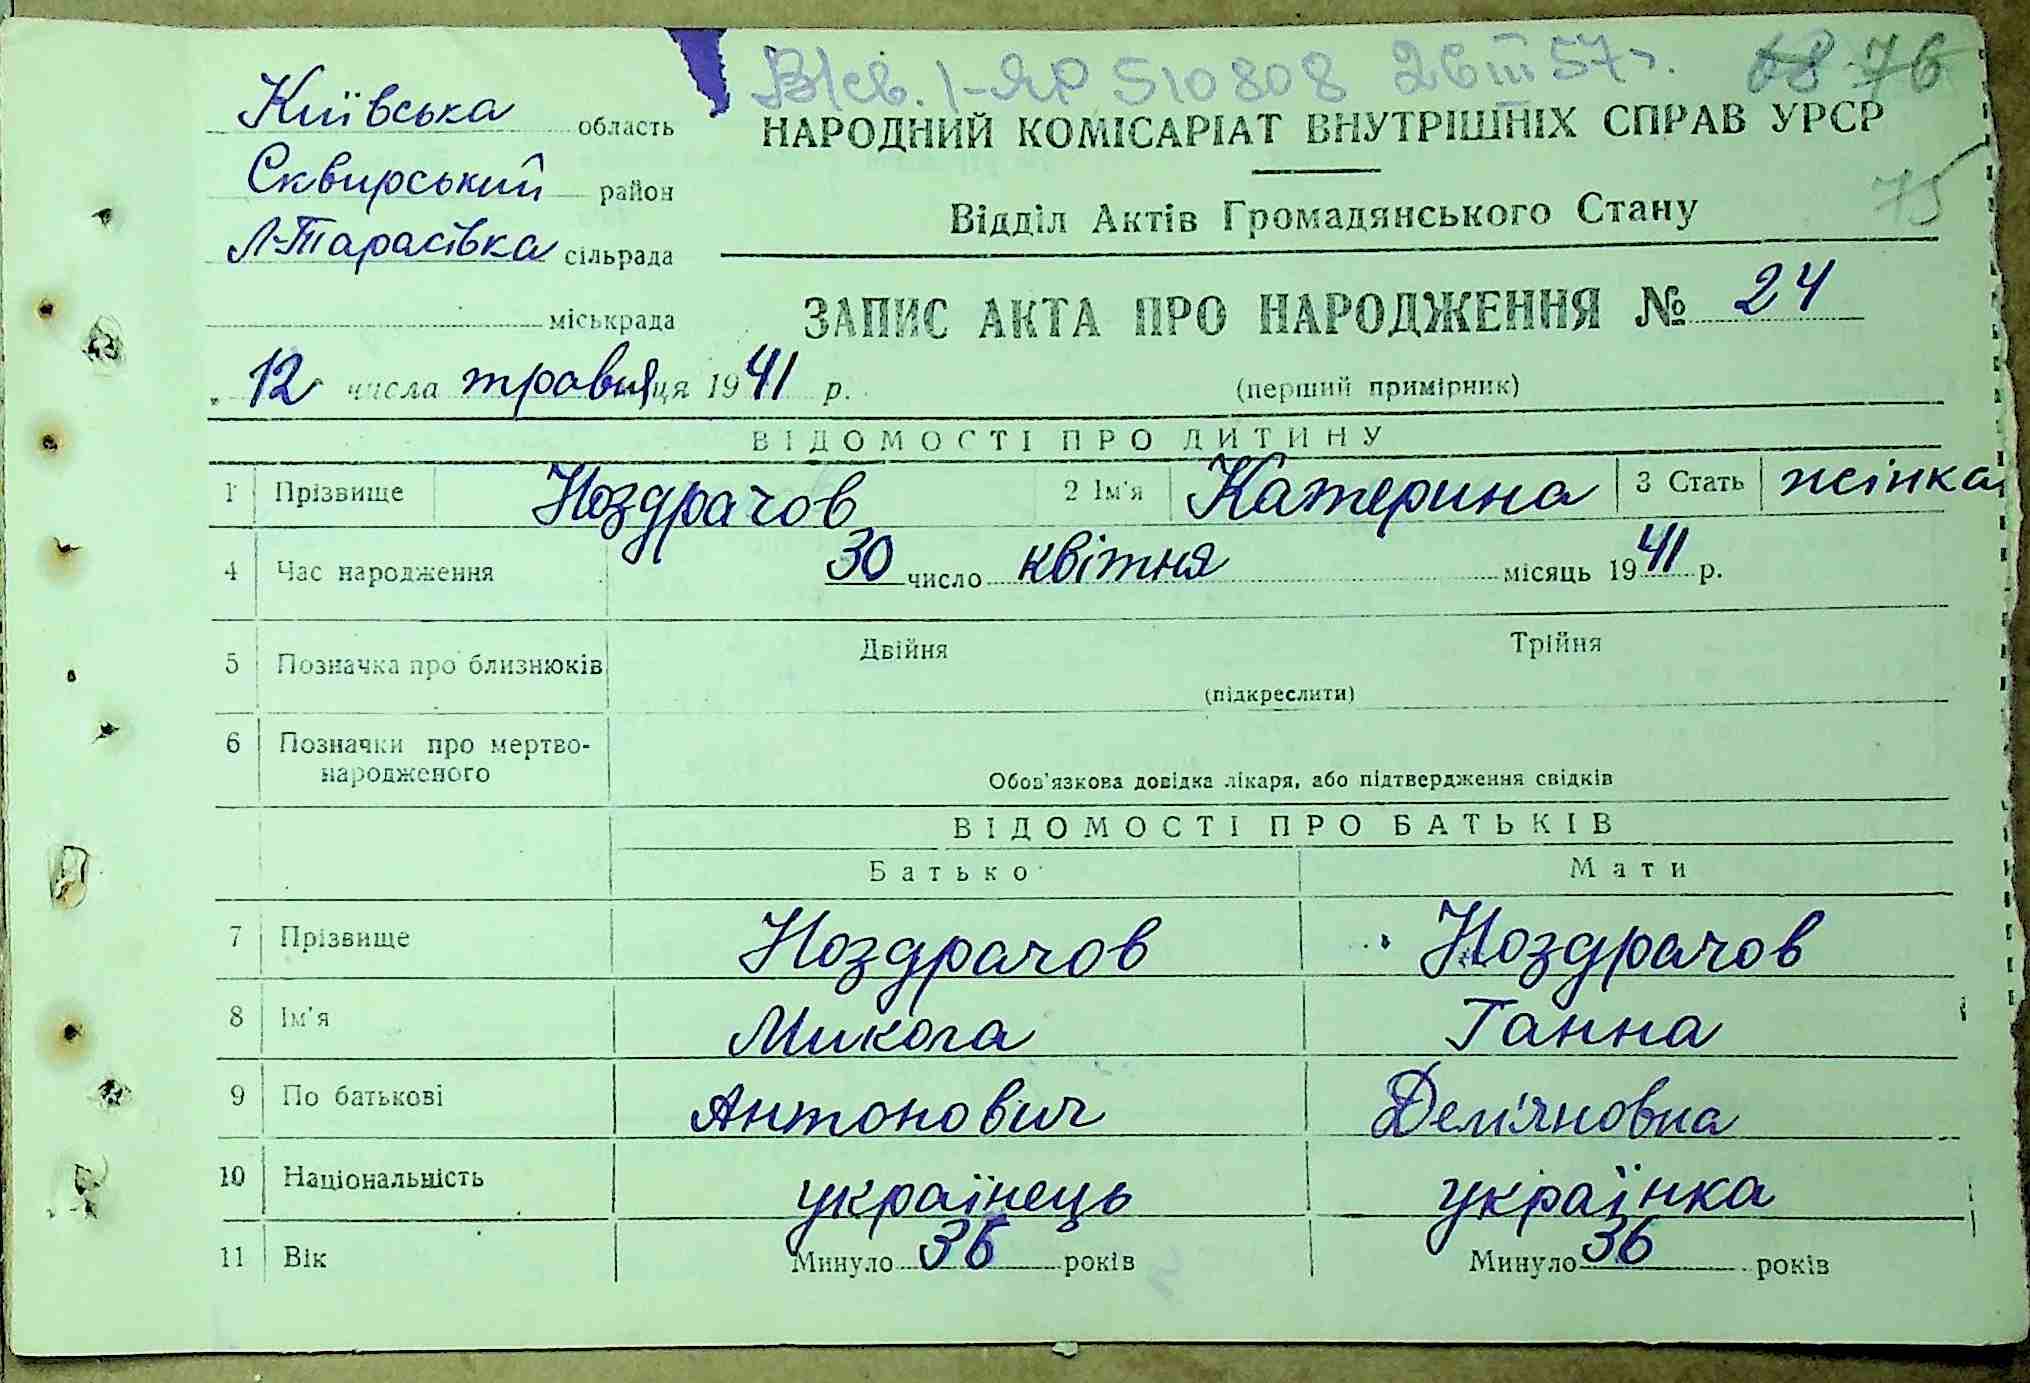 В/св. І-ЯР 510808 26 III 57 г. 68 76
Київська область
НАРОДНИЙ КОМІСАРІАТ ВНУТРІШНІХ СПРАВ УРСР
Сквирський район
75
Відділ Актів Громадянського Стану
Л-Тарасівка сільрада
міськрада
ЗАПИС АКТА ПРО НАРОДЖЕННЯ № 24
12 числа травня ця 1941 р.
(перший примірник)
ВІДОМОСТІ ПРО ДИТИНУ
1 Прізвище Ноздрачов 2 Ім'я Катерина 3 Стать жінка
4 Час народження 30 число квітня місяць 1941 р.
5 Позначка про близнюків Двійня Трійня
(підкреслити)
6 Позначки про мертво-
народженого
Обов'язкова довідка лікаря, або підтвердження свідків
ВІДОМОСТІ ПРО БАТЬКІВ
Батько Мати
7 Прізвище Ноздрачов Ноздрачов
8 Ім'я Микола Ганна
9 По батькові Антонович Дем'яновна
10 Національність українець українка
11 Вік Минуло 36 років Минуло 36 років